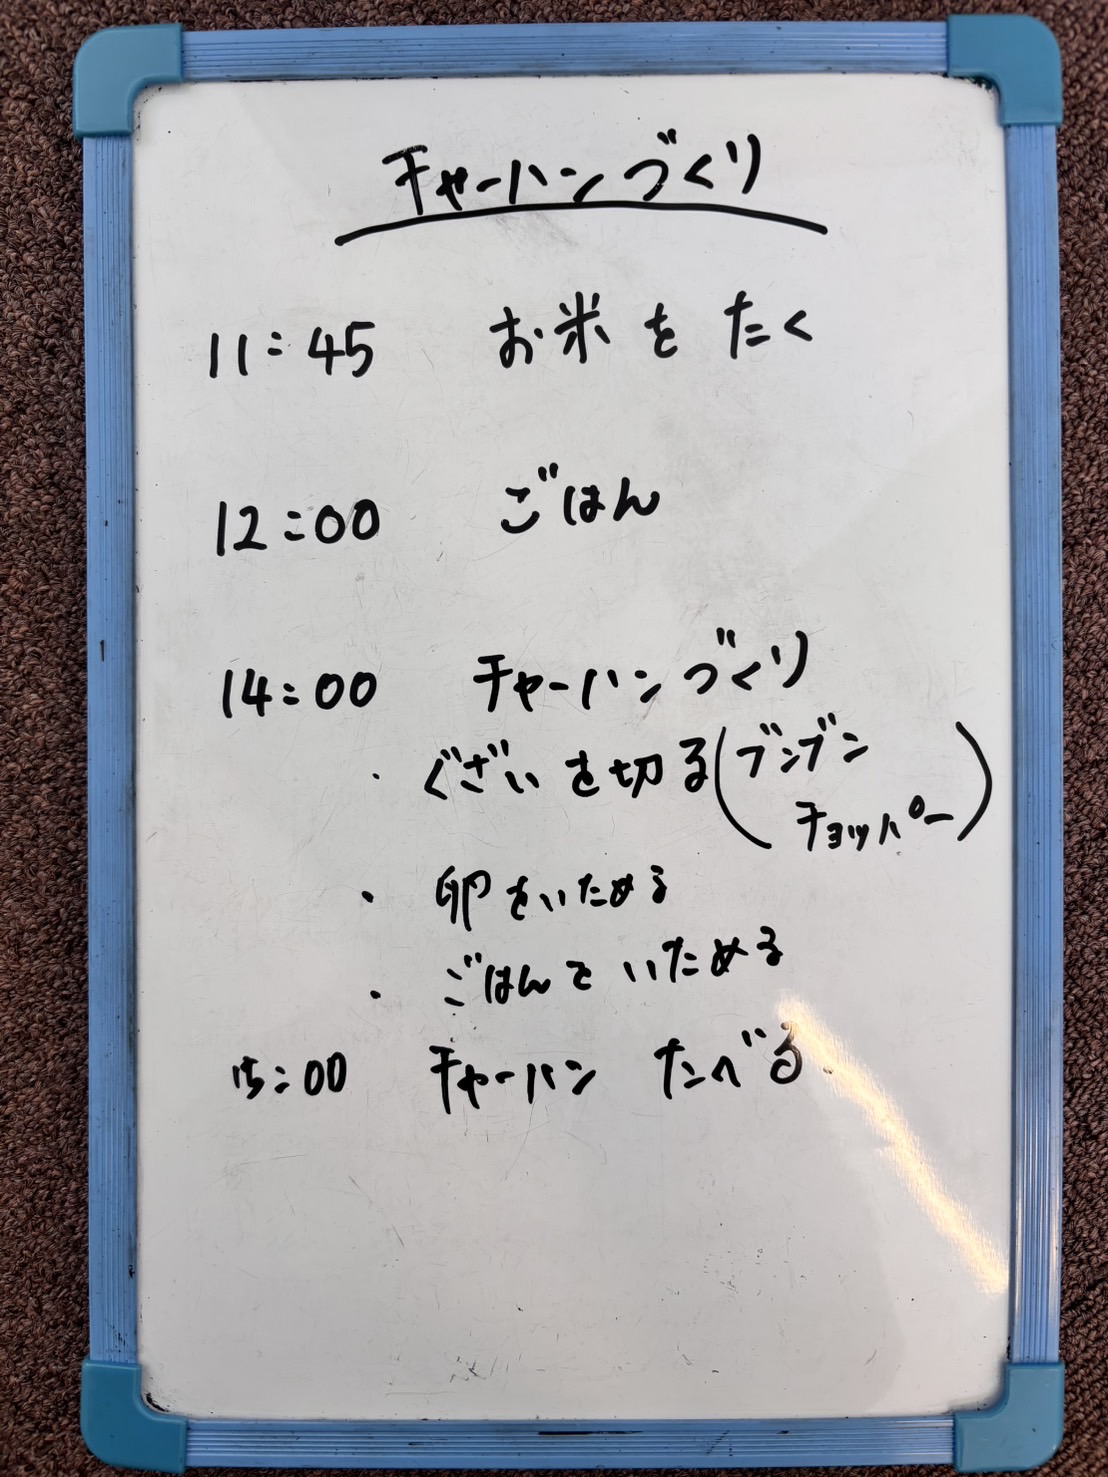 チャーハンづくり
11:45 お米をたく
12:00 ごはん
14:00 チャーハンづくり
・ぐざいを切る(ブンブン
チョッパー)
・卵をいためる
・ごはんをいためる
15:00 チャーハン たべる